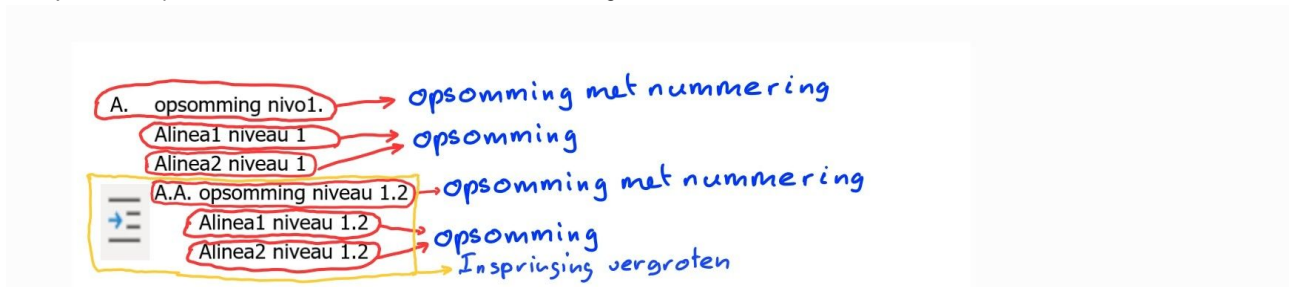 A. opsomming nivo1. opsomming met nummering
Alinea1 niveau 1 opsomming
Alinea2 niveau 1
A.A. opsomming niveau 1.2 opsomming met nummering
Alinea1 niveau 1.2 opsomming
Alinea2 niveau 1.2
Inspringing vergroten